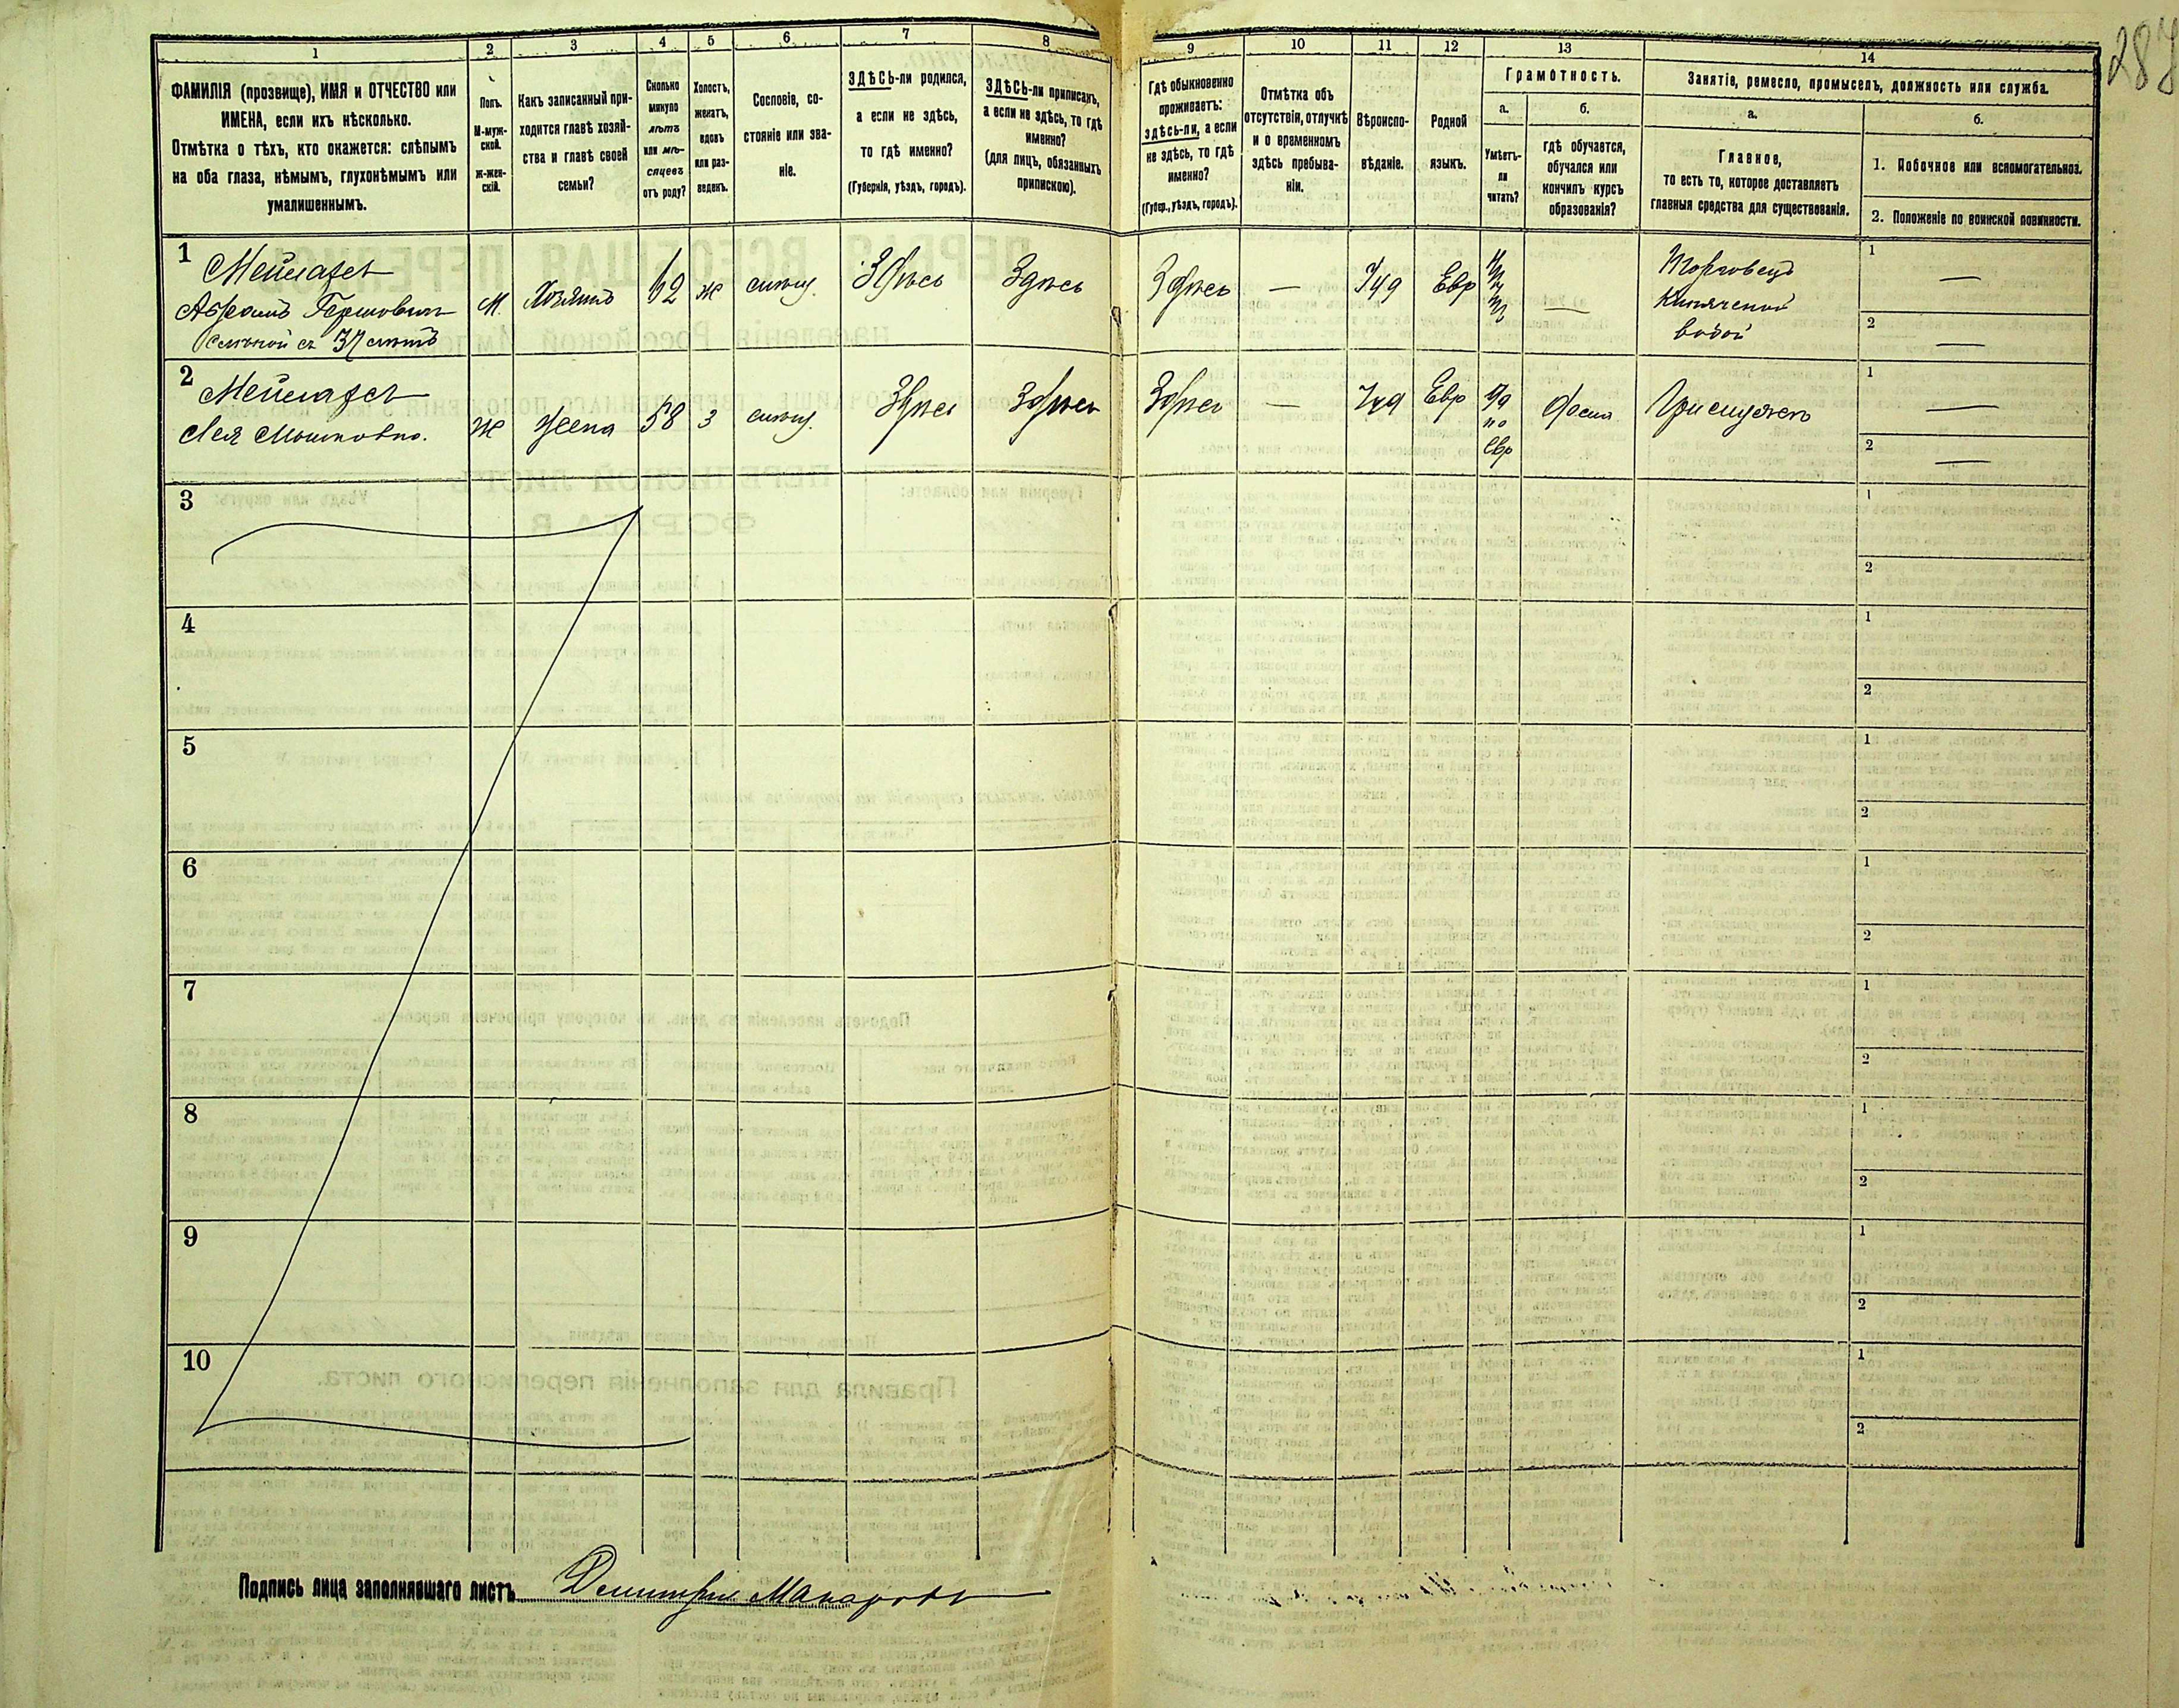 287
1 2 3 4 5 6 7 8 9 10 11 12 13 14
ФАМИЛІЯ (прозвище), ИМЯ и ОТЧЕСТВО или
ИМЕНА, если ихъ нѣсколько.
Отмѣтка о тѣхъ, кто окажется: слѣпымъ
на оба глаза, нѣмымъ, глухонѣмымъ или
умалишеннымъ.
Полъ.
М-муж-
ской.
Ж-жен-
скій.
Какъ записанный при-
ходится главѣ хозяй-
ства и главѣ своей
семьи?
Сколько
минуло
лѣтъ
или мѣ-
сяцевъ
отъ роду?
Холостъ,
женатъ,
вдовъ
или раз-
веденъ.
Сословіе, со-
стояніе или зва-
ніе.
ЗДѢСЬ-ли родился,
а если не здѣсь,
то гдѣ именно?
(Губернія, уѣздъ, городъ).
ЗДѢСЬ-ли приписанъ,
а если не здѣсь, то гдѣ
именно?
(для лицъ, обязанныхъ
припискою).
Гдѣ обыкновенно
проживаетъ:
здѣсь-ли, а если
не здѣсь, то гдѣ
именно?
(Губер., уѣздъ, городъ).
Отмѣтка объ
отсутствіи, отлучкѣ
и о временномъ
здѣсь пребыва-
ніи.
Вѣроиспо-
вѣданіе.
Родной
языкъ.
Грамотность.
а.
Умѣетъ-
ли
читать?
б.
гдѣ обучается,
обучался или
кончилъ курсъ
образованія?
Занятіе, ремесло, промыселъ, должность или служба.
а.
Главное,
то есть то, которое доставляетъ
главныя средства для существованія.
б.
1. Побочное или вспомогательное.
2. Положеніе по воинской повинности.
1 Мейлахсъ
Абрамъ Гершовичъ
Слѣпой съ 37 лѣтъ
М. Хозяинъ 62 ж мѣщ. Здѣсь Здѣсь Здѣсь — Іуд Евр — Торговецъ
кипяченой
водой
1 —
2 —
2 Мейлахсъ
Лея Мошковна.
Ж жена 58 з мѣщ. Здѣсь Здѣсь Здѣсь — Іуд Евр Да
по
Евр
Дома При мужѣ
1 —
2 —
3 1
2
4 1
2
5 1
2
6 1
2
7 1
2
8 1
2
9 1
2
10 1
2
Подпись лица заполнявшаго листъ Димитрій Макаровъ